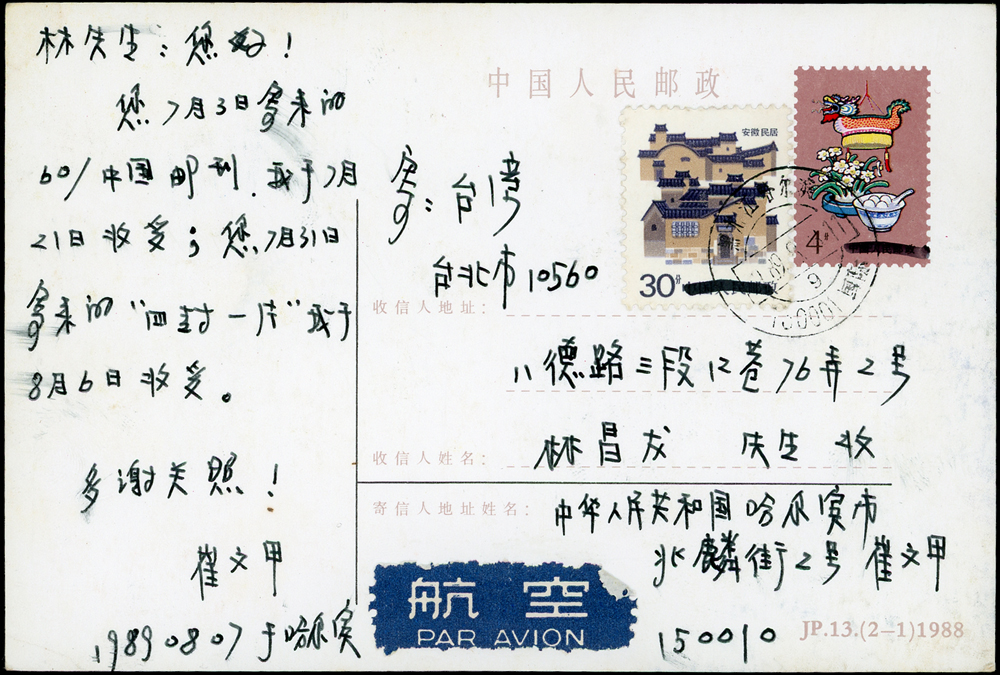 林先生：您好！
您7月3日寄来的
601中国邮刊，我于7月
21日收受；您7月31日
寄来的“四封一片”我于
8月6日收受。
多谢关照！
崔文甲
19890807于哈尔宾
中国人民邮政
安徽民居
30分
4分
寄：台湾
台北市10560
收信人地址：
八德路三段12巷76弄2号
收信人姓名：
林昌龙 先生 收
寄信人地址姓名：
中华人民共和国哈尔宾市
兆麟街2号 崔文甲
航空
PAR AVION
150010
JP.13.(2-1)1988